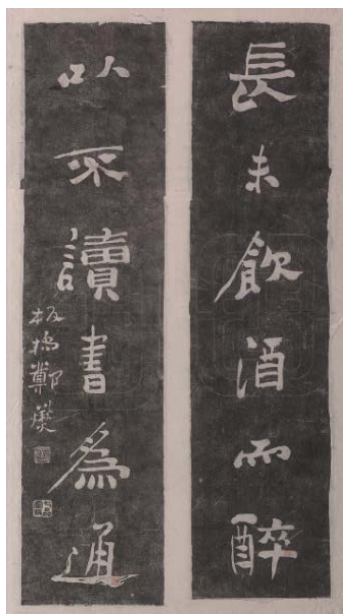 長未飲酒而醉
以不讀書爲通
板橋鄭燮